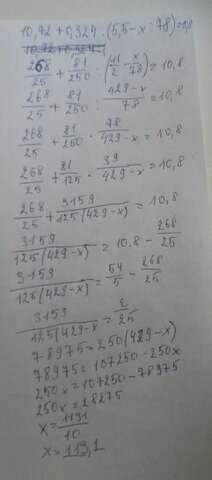 10,72 + 0,324 : (5,5 - x : 78) = 10,8
268/25 + 81/250 : (11/2 - x/78) = 10,8
268/25 + 81/250 : (429-x)/78 = 10,8
268/25 + 81/250 · 78/(429-x) = 10,8
268/25 + 81/125 · 39/(429-x) = 10,8
268/25 + 3159/(125(429-x)) = 10,8
3159/(125(429-x)) = 10,8 - 268/25
3159/(125(429-x)) = 54/5 - 268/25
3159/(125(429-x)) = 2/25
78975 = 250(429-x)
78975 = 107250 - 250x
250x = 107250 - 78975
250x = 28275
x = 1131/10
x = 113,1